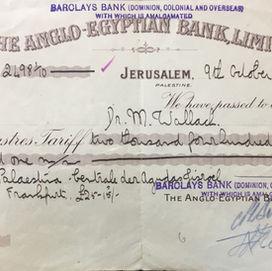 BARCLAYS BANK (DOMINION, COLONIAL AND OVERSEAS)
WITH WHICH IS AMALGAMATED
THE ANGLO-EGYPTIAN BANK, LIMI
JERUSALEM, 9th October
PALESTINE.
We have passed to
Dr. M. Wallach
astres Tariff two thousand four hundred
d one m/m
Palaestina Centrale der Agudas Jisroel
Frankfurt £25-15/-
BARCLAYS BANK (DOMINION, CO
WITH WHICH IS AMALGAMA
THE ANGLO-EGYPTIAN BAN